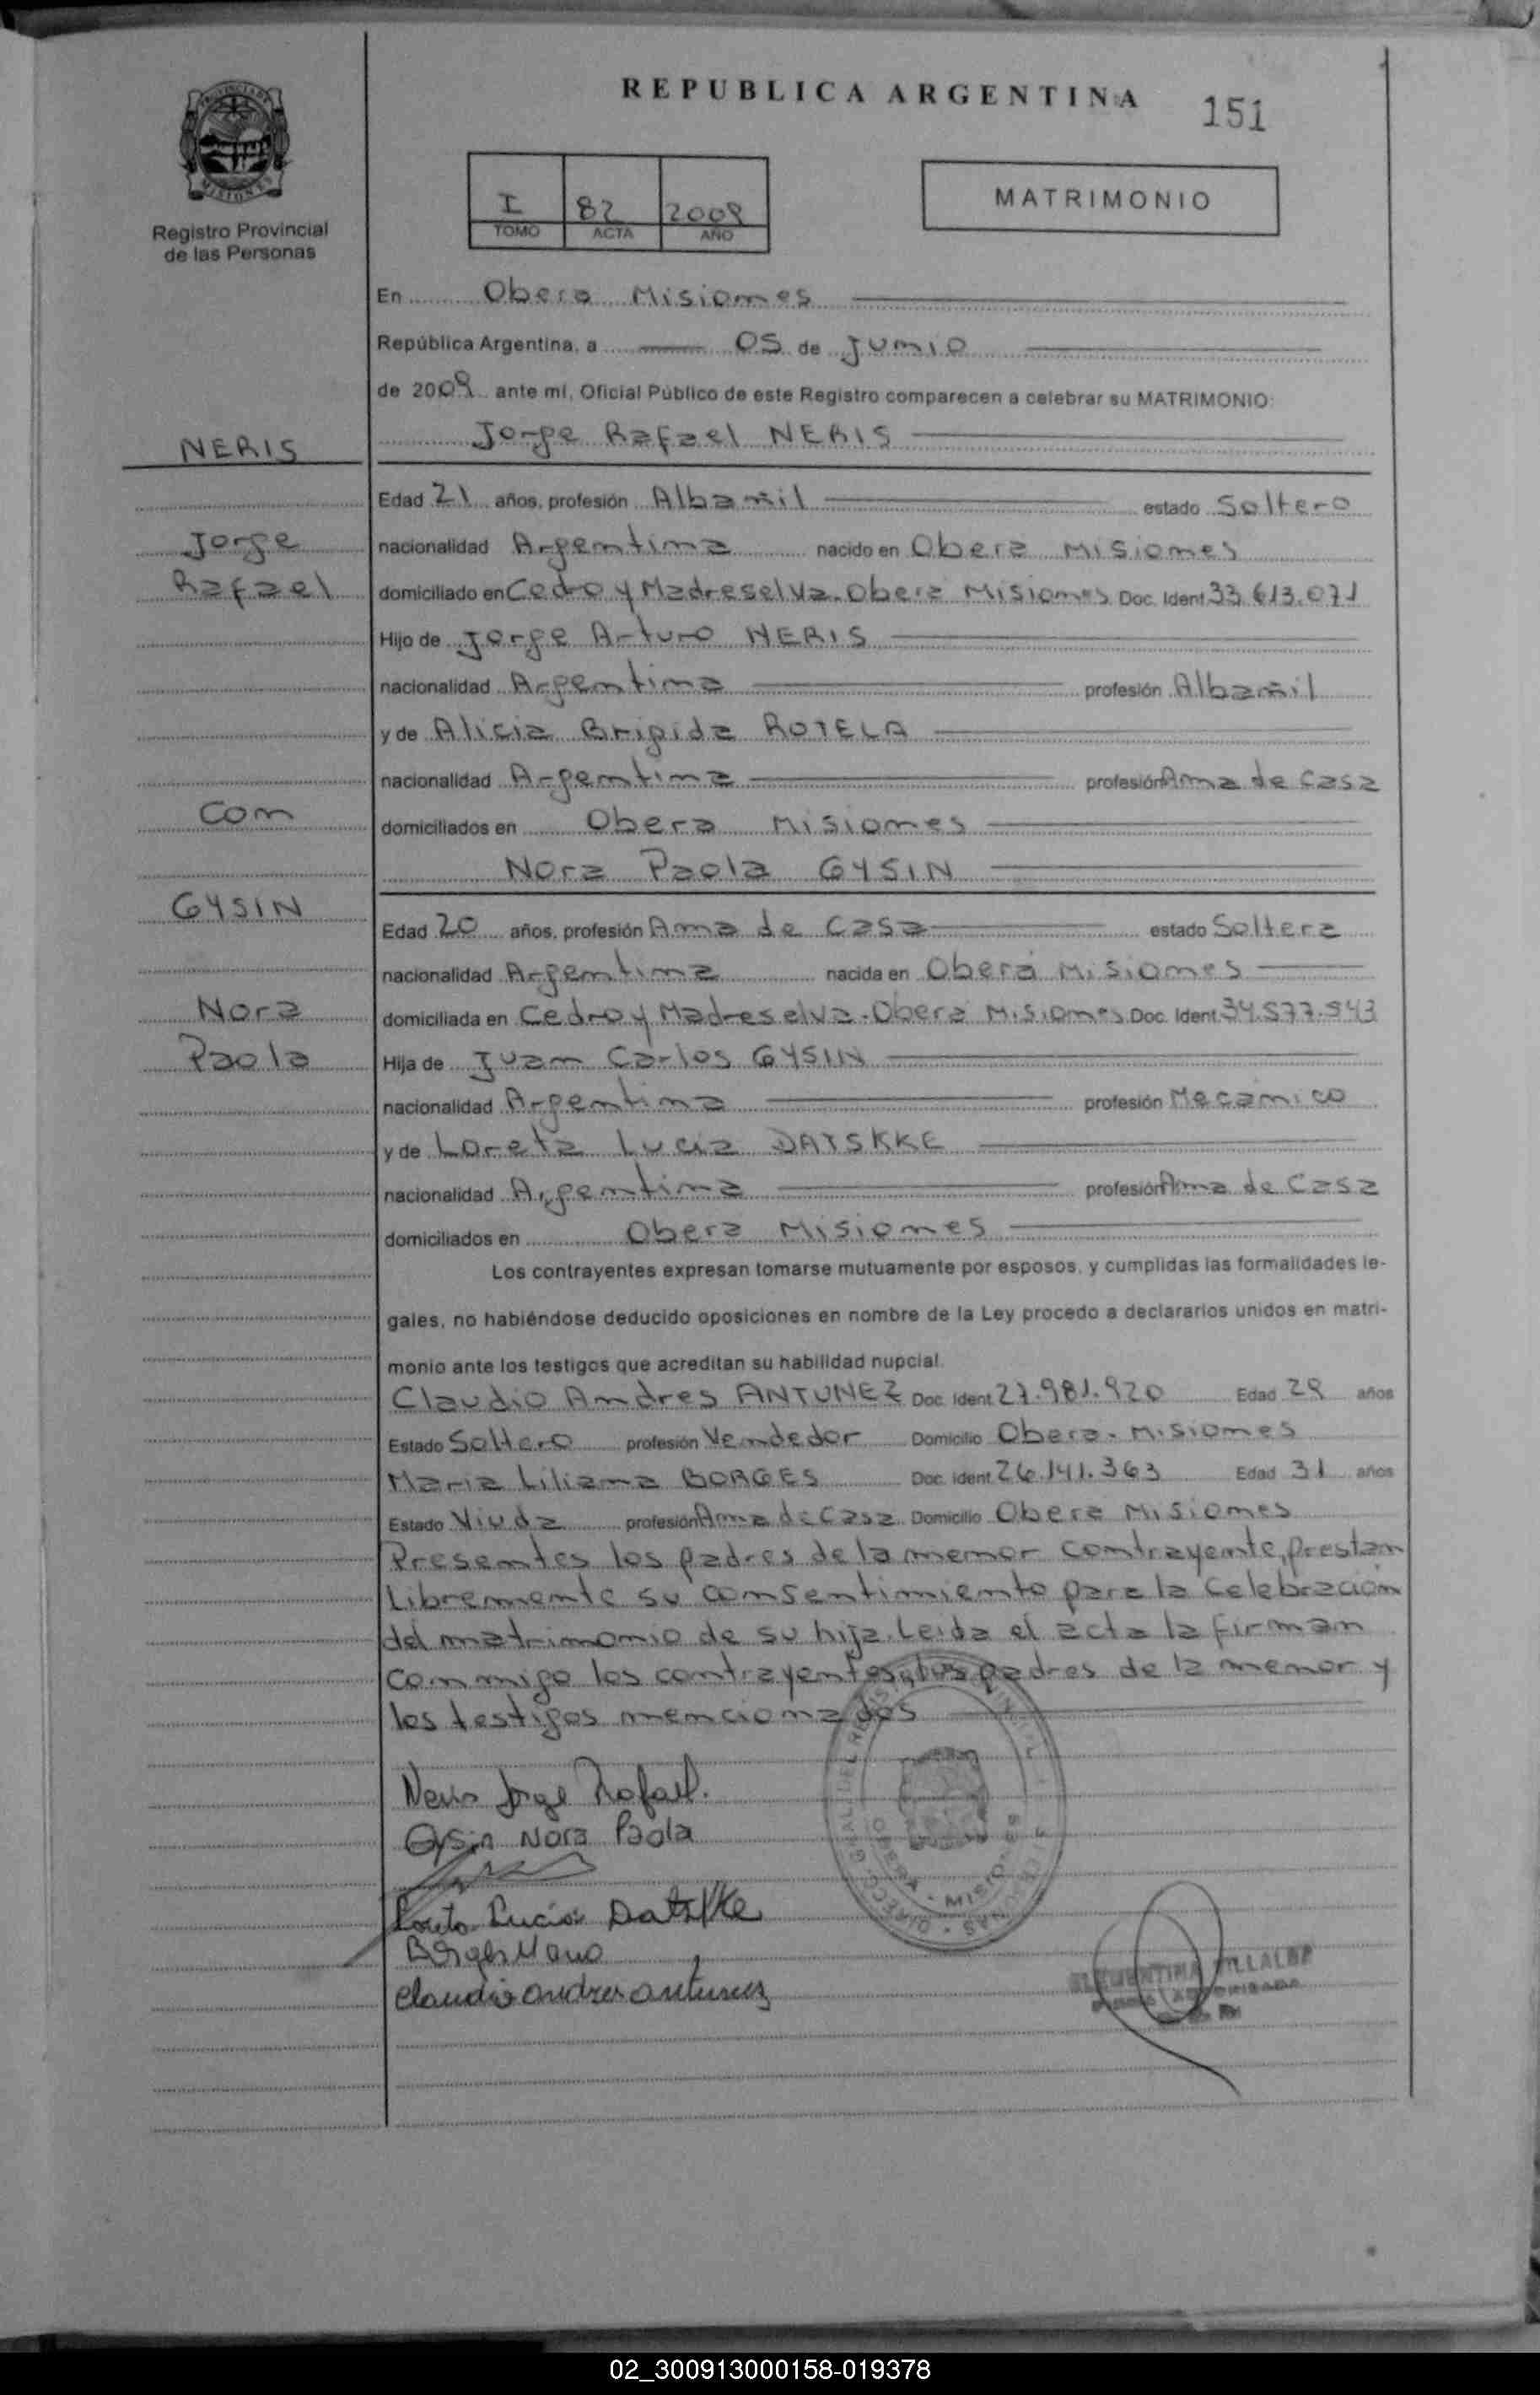 REPUBLICA ARGENTINA
151
Registro Provincial
de las Personas
I 82 2009
TOMO ACTA AÑO
MATRIMONIO
En Obera Misiones
República Argentina, a 05 de Junio
de 2009 ante mí, Oficial Público de este Registro comparecen a celebrar su MATRIMONIO:
Jorge Rafael NERIS
NERIS
Edad 21 años, profesión Albañil estado Soltero
Jorge
nacionalidad Argentina nacido en Obera Misiones
Rafael
domiciliado en Cedro y Madreselva. Obera Misiones Doc. Ident 33.613.071
Hijo de Jorge Arturo NERIS
nacionalidad Argentina profesión Albañil
y de Alicia Brigida ROTELA
nacionalidad Argentina profesión Ama de Casa
Con
domiciliados en Obera Misiones
Nora Paola GYSIN
GYSIN
Edad 20 años, profesión Ama de Casa estado Soltera
nacionalidad Argentina nacida en Oberá Misiones
Nora
domiciliada en Cedro y Madreselva. Obera Misiones Doc. Ident. 34.577.543
Paola
Hija de Juan Carlos GYSIN
nacionalidad Argentina profesión Mecanico
y de Loreta Lucia DATSKKE
nacionalidad Argentina profesión Ama de Casa
domiciliados en Obera Misiones
Los contrayentes expresan tomarse mutuamente por esposos, y cumplidas las formalidades le-
gales, no habiéndose deducido oposiciones en nombre de la Ley procedo a declararlos unidos en matri-
monio ante los testigos que acreditan su habilidad nupcial.
Claudio Andres ANTUNEZ Doc. Ident 27.981.920 Edad 29 años
Estado Soltero profesión Vendedor Domicilio Obera. Misiones
Maria Liliana BORGES Doc. Ident 26.141.363 Edad 31 años
Estado Viuda profesión Ama de Casa Domicilio Obera Misiones
Presentes los padres de la menor contrayente, prestan
Libremente su consentimiento para la celebración
del matrimonio de su hija. Leida el acta la firman
conmigo los contrayentes, los padres de la menor y
los testigos mencionados
Neris Jorge Rafael.
Gysin Nora Paola
Loreta Lucia Datskke
Borges Maria
Claudio andres antunez
OBERA - MISIONES
CLEMENTINA VILLALBA
02_300913000158-019378